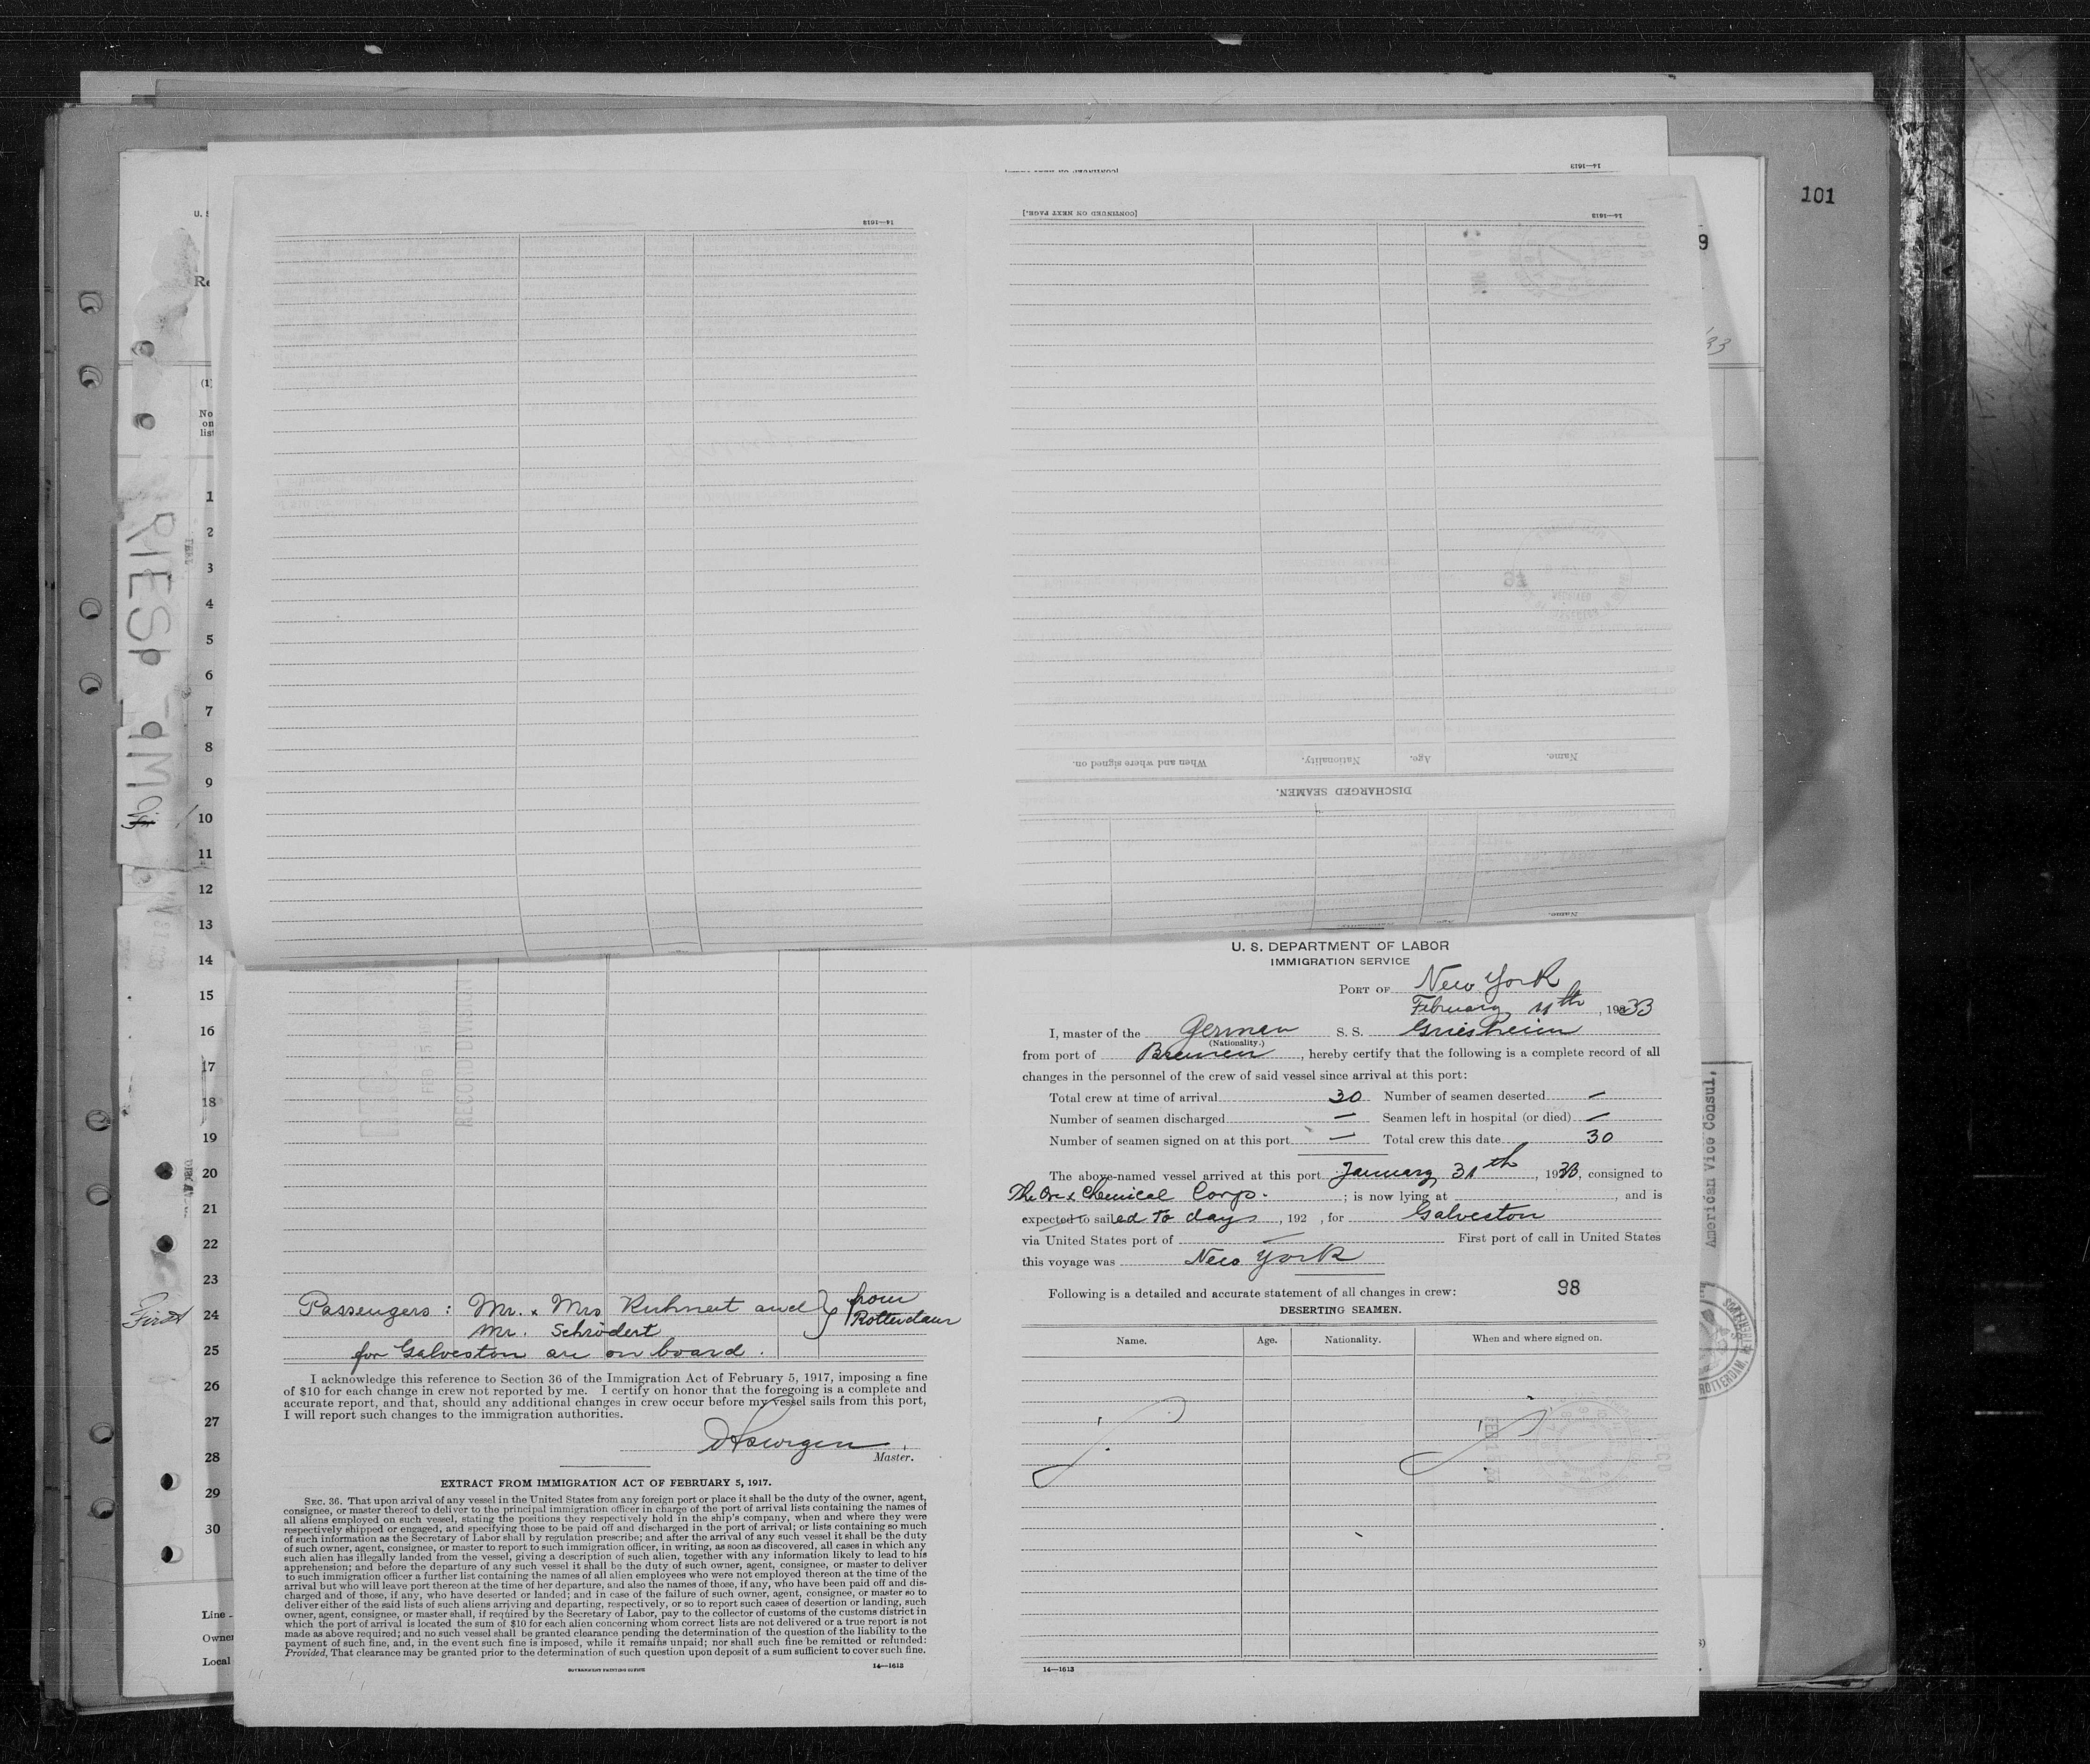 101
14—1613
[CONTINUED ON NEXT PAGE.]
14—1613
14—1613
9
33
(1)
No
on
list
1
2
3
4
5
6
7
8
9
10
11
12
13
14
15
16
17
18
19
20
21
22
23
24
25
26
27
28
29
30
Line
Owner
Local
First
Name.
Age.
Nationality.
When and where signed on.
DISCHARGED SEAMEN.
Name.
Passengers: Mr. & Mrs Kuhnert and } from
Mr. Schrödert } Rotterdam
for Galveston are on board.
I acknowledge this reference to Section 36 of the Immigration Act of February 5, 1917, imposing a fine
of $10 for each change in crew not reported by me. I certify on honor that the foregoing is a complete and
accurate report, and that, should any additional changes in crew occur before my vessel sails from this port,
I will report such changes to the immigration authorities.
Master.
EXTRACT FROM IMMIGRATION ACT OF FEBRUARY 5, 1917.
SEC. 36. That upon arrival of any vessel in the United States from any foreign port or place it shall be the duty of the owner, agent,
consignee, or master thereof to deliver to the principal immigration officer in charge of the port of arrival lists containing the names of
all aliens employed on such vessel, stating the positions they respectively hold in the ship's company, when and where they were
respectively shipped or engaged, and specifying those to be paid off and discharged in the port of arrival; or lists containing so much
of such information as the Secretary of Labor shall by regulation prescribe; and after the arrival of any such vessel it shall be the duty
of such owner, agent, consignee, or master to report to such immigration officer, in writing, as soon as discovered, all cases in which any
such alien has illegally landed from the vessel, giving a description of such alien, together with any information likely to lead to his
apprehension; and before the departure of any such vessel it shall be the duty of such owner, agent, consignee, or master to deliver
to such immigration officer a further list containing the names of all alien employees who were not employed thereon at the time of the
arrival but who will leave port thereon at the time of her departure, and also the names of those, if any, who have been paid off and dis-
charged and of those, if any, who have deserted or landed; and in case of the failure of such owner, agent, consignee, or master so to
deliver either of the said lists of such aliens arriving and departing, respectively, or so to report such cases of desertion or landing, such
owner, agent, consignee, or master shall, if required by the Secretary of Labor, pay to the collector of customs of the customs district in
which the port of arrival is located the sum of $10 for each alien concerning whom correct lists are not delivered or a true report is not
made as above required; and no such vessel shall be granted clearance pending the determination of the question of the liability to the
payment of such fine, and, in the event such fine is imposed, while it remains unpaid; nor shall such fine be remitted or refunded:
Provided, That clearance may be granted prior to the determination of such question upon deposit of a sum sufficient to cover such fine.
GOVERNMENT PRINTING OFFICE 14—1613
U. S. DEPARTMENT OF LABOR
IMMIGRATION SERVICE
PORT OF New York
February 4th, 1933
I, master of the German S. S. Griesheim
(Nationality.)
from port of Bremen, hereby certify that the following is a complete record of all
changes in the personnel of the crew of said vessel since arrival at this port:
Total crew at time of arrival 30 Number of seamen deserted —
Number of seamen discharged — Seamen left in hospital (or died) —
Number of seamen signed on at this port — Total crew this date 30
The above-named vessel arrived at this port January 31th, 1933, consigned to
The Ore & Chemical Corp. ; is now lying at , and is
expected to sailed to day, 192 , for Galveston
via United States port of — First port of call in United States
this voyage was New York
Following is a detailed and accurate statement of all changes in crew: 98
DESERTING SEAMEN.
Name. Age. Nationality. When and where signed on.
14—1613
American Vice Consul,
ROTTERDAM